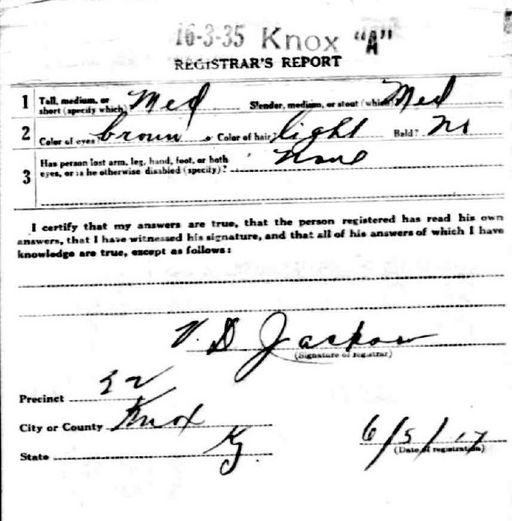 16-3-35 Knox "A"
REGISTRAR'S REPORT
1 Tall, medium, or short (specify which)? Med Slender, medium, or stout (which)? Med
2 Color of eyes? brown Color of hair? light Bald? No
3 Has person lost arm, leg, hand, foot, or both eyes, or is he otherwise disabled (specify)? None
I certify that my answers are true, that the person registered has read his own
answers, that I have witnessed his signature, and that all of his answers of which I have
knowledge are true, except as follows:
V. D. Jackson
(Signature of registrar)
Precinct 32
City or County Knox
State Ky.
6/5/17
(Date of registration)